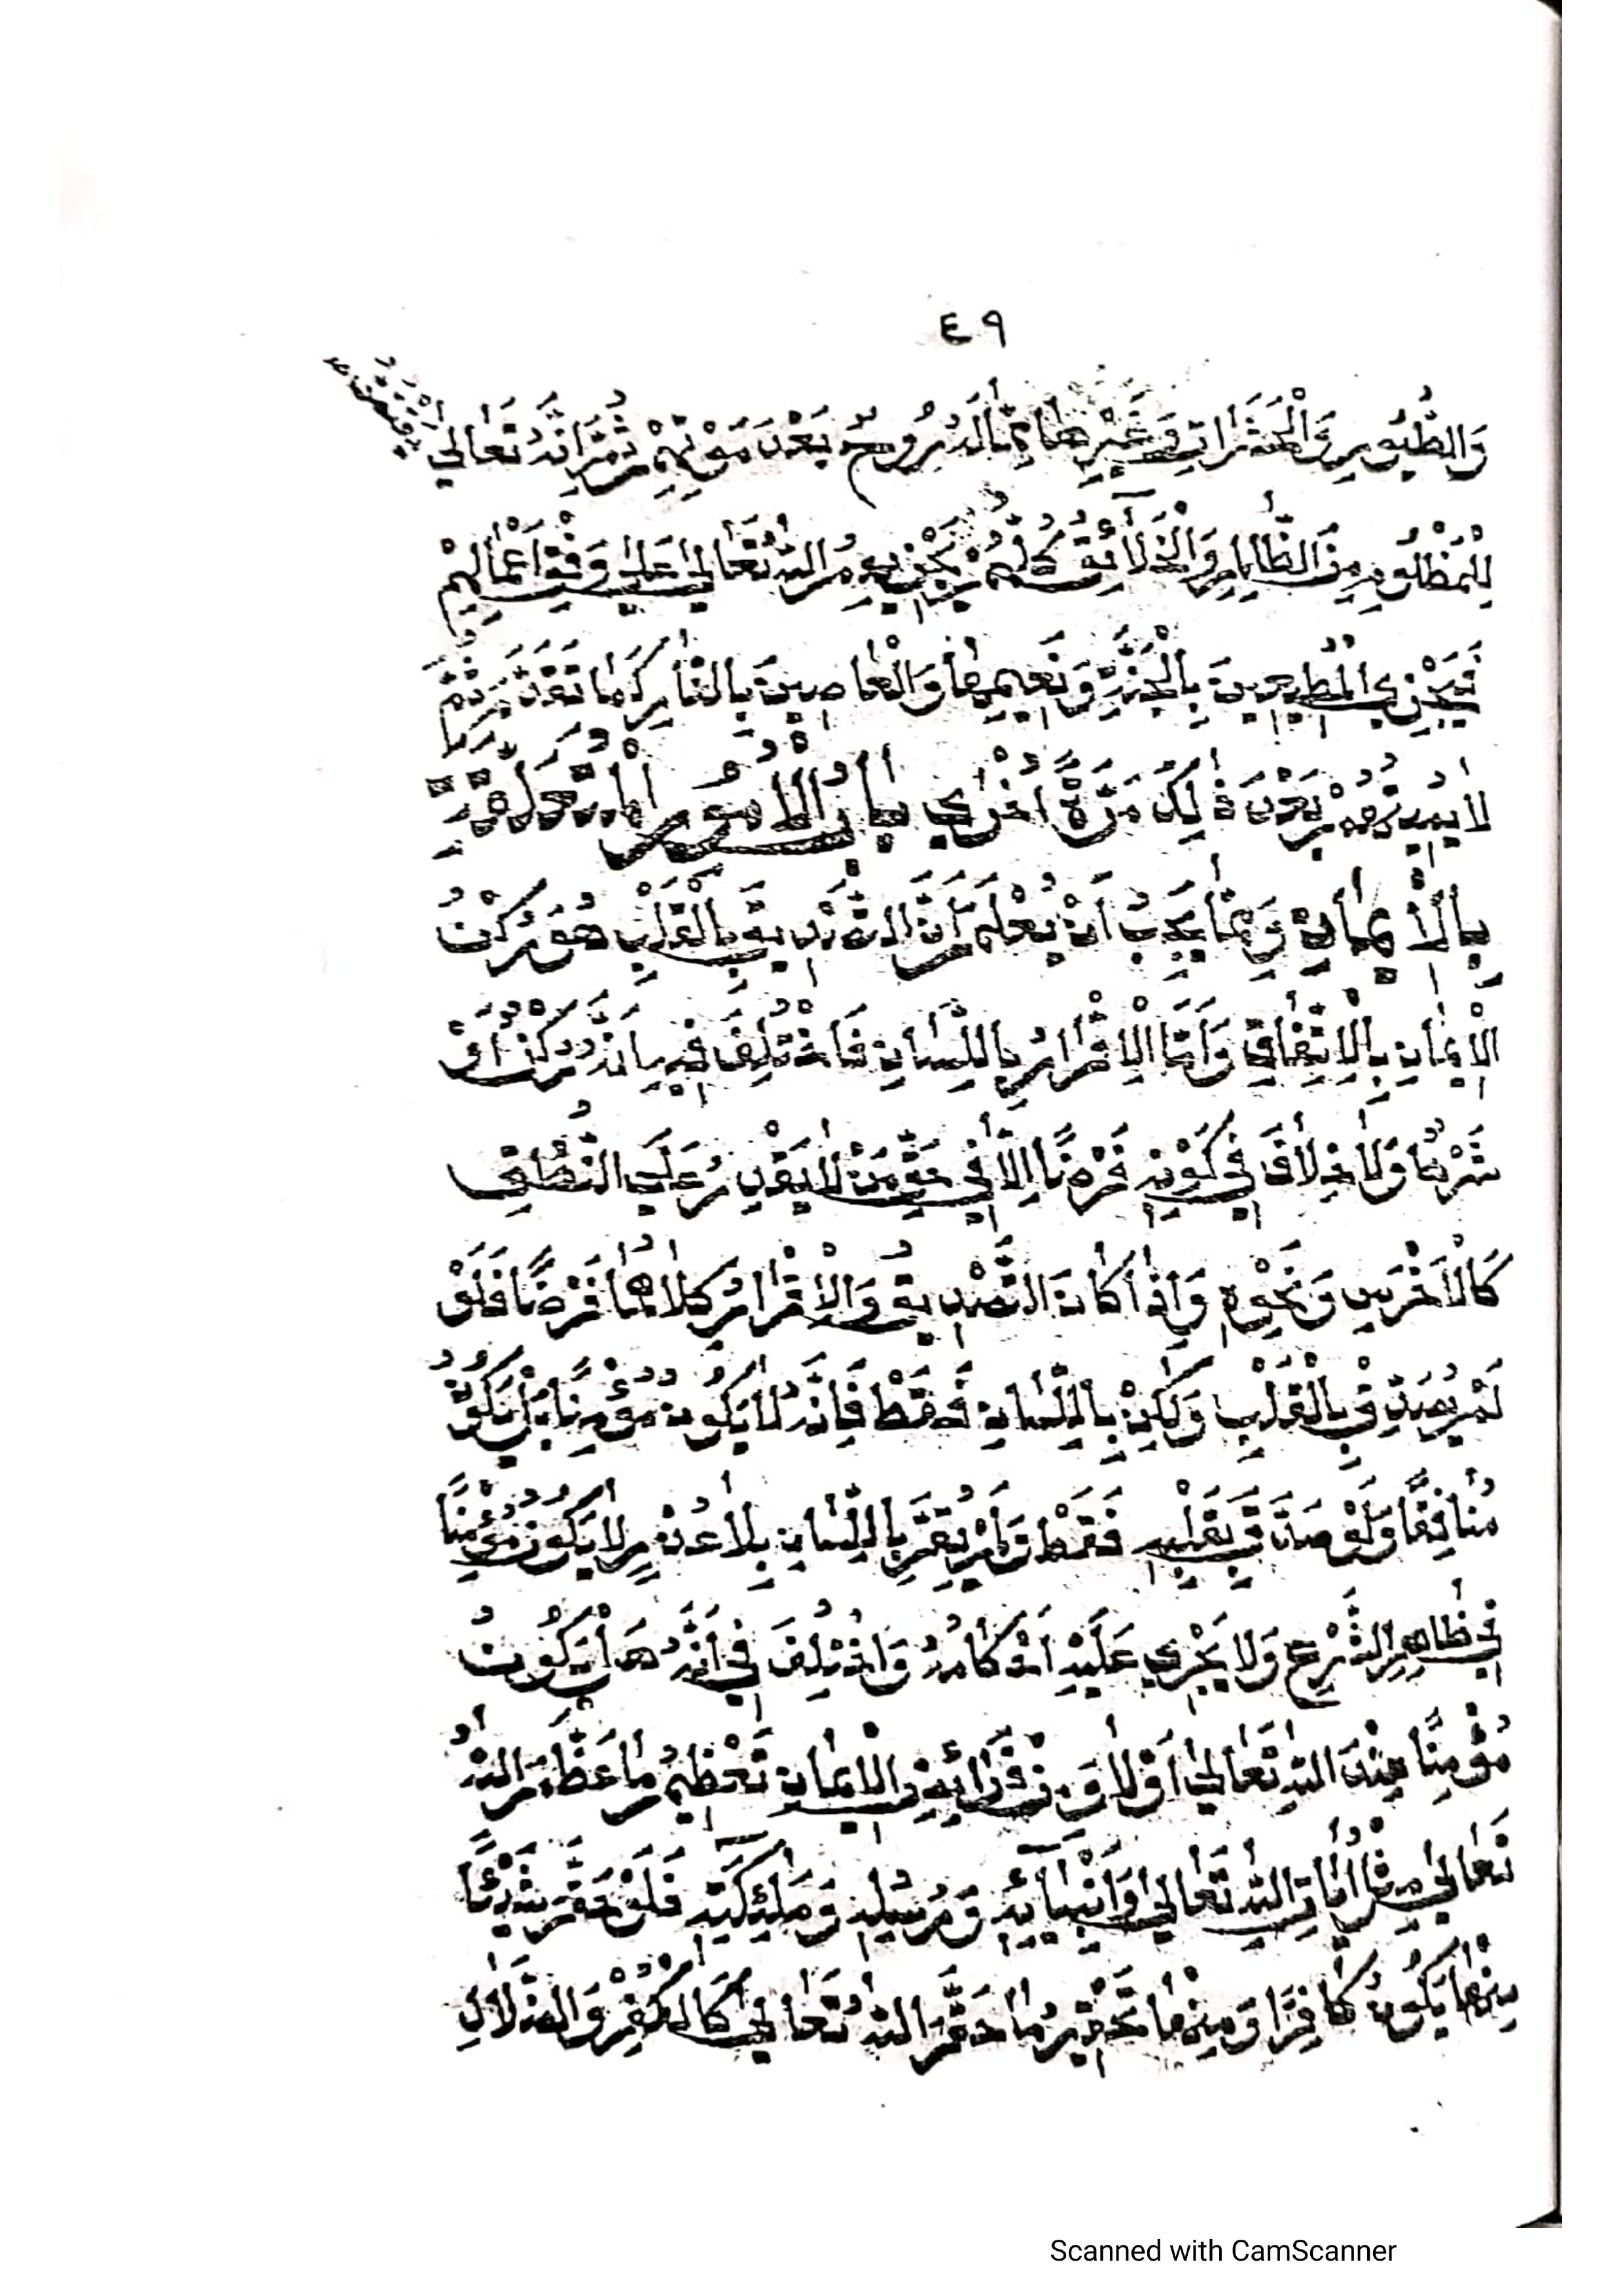 ٤٩
وَالطُّيُورِ وَالْحَشَرَاتِ وَغَيْرِهَا مِمَّا لَهُ رُوحٌ بَعْدَ مَوْتِهِمْ ثُمَّ إِنَّهُ تَعَالَى يَقْتَصُّ
لِلْمَظْلُومِ مِنَ الظَّالِمِ وَالْخَلَآئِقُ كُلُّهُمْ يَجْزِيهِمُ اللهُ تَعَالَى عَلَى وَفْقِ أَعْمَالِهِمْ
فَيَجْزِي الْمُطِيعِينَ بِالْجَنَّةِ وَنَعِيمِهَا وَالْعَاصِينَ بِالنَّارِ كَمَا تَقَدَّمَ ثُمَّ
لَا يُمِيتُهُمْ بَعْدَ ذَلِكَ مَرَّةً أُخْرَى بَابُ الْأُمُورِ الْمُتَعَلِّقَةِ
بِالْإِيمَانِ وَمِمَّا يَجِبُ أَنْ يُعْلَمَ أَنَّ التَّصْدِيقَ بِالْقَلْبِ هُوَ رُكْنُ
الْإِيمَانِ بِالْاِتِّفَاقِ وَأَمَّا الْإِقْرَارُ بِاللِّسَانِ فَاخْتُلِفَ فِيهِ بِأَنَّهُ رُكْنٌ أَوْ
شَرْطٌ وَلَا خِلَافَ فِي كَوْنِهِ فَرْضًا إِلَّا فِي حَقِّ مَنْ لَا يَقْدِرُ عَلَى النُّطْقِ
كَالْأَخْرَسِ وَنَحْوِهِ وَإِذَا كَانَ التَّصْدِيقُ وَالْإِقْرَارُ كِلَاهُمَا فَرْضًا فَلَوْ
لَمْ يُصَدِّقْ بِالْقَلْبِ وَلَكِنْ بِاللِّسَانِ فَقَطْ فَإِنَّهُ لَا يَكُونُ مُؤْمِنًا بَلْ يَكُونُ
مُنَافِقًا وَلَوْ صَدَّقَ بِقَلْبِهِ فَقَطْ وَلَمْ يُقِرَّ بِاللِّسَانِ بِلَا عُذْرٍ لَا يَكُونُ مُؤْمِنًا
فِي ظَاهِرِ الشَّرْعِ وَلَا يَجْرِي عَلَيْهِ أَحْكَامُهُ وَاخْتُلِفَ فِي أَنَّهُ هَلْ يَكُونُ
مُؤْمِنًا عِنْدَ اللهِ تَعَالَى أَوْ لَا وَمِنْ فَرَائِضِ الْإِيمَانِ تَعْظِيمُ مَا عَظَّمَ اللهُ
تَعَالَى مِثْلُ أَيَاتِ اللهِ تَعَالَى وَأَنْبِيَآئِهِ وَرُسُلِهِ وَمَلَئِكَتِهِ فَلَوْ حَقَّرَ شَيْئًا
مِنْهَا يَكُونُ كَافِرًا وَمِنْهَا تَحْقِيرُ مَا حَقَّرَ اللهُ تَعَالَى كَالْكُفْرِ وَالضَّلَالِ
Scanned with CamScanner